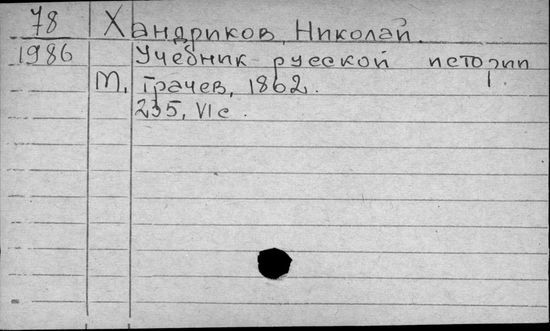 78 Хандриков, Николай.
1986 Учебник русской истории
М, Грачев, 1862.
235, VI с.